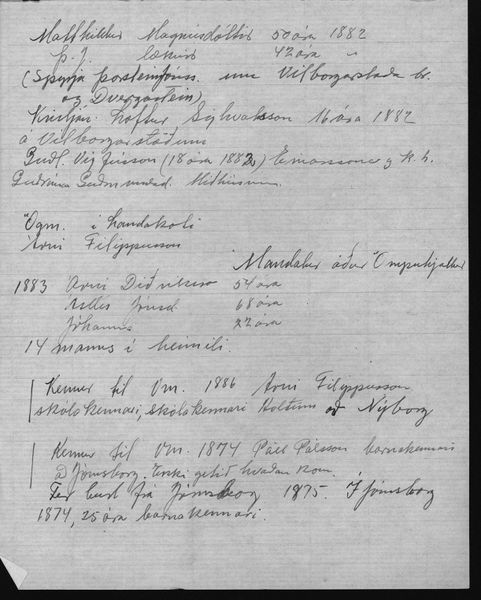 Matthildur Magnúsdóttir 50 ára 1882
Þ. J. læknir 42 ára "
(Spyrja Þorstein Jónss. um Vilborgarstada br.
og Dvergastein)
Kristján Loftur Sighvatsson 16 ára 1882
á Vilborgarstöðum
Guðl. Vig fússon (18 ára 1882)
Guðrúna Guðmundsd.
Ögm. í Landakoti
Árni Filippusson
Mandalur áður Ömpuhjallur
1883 Árni Diðriksson 54 ára
Ásdís Jónsd 68 ára
Jóhannes 22 ára
14 manns í heimili.
Kemur til Vm. 1886 Árni Filippusson
skólakennari, skólakennari Holtum að Nýborg
Kemur til Vm. 1874 Páll Pálsson barnakennari
að Jómsborg. Ekki getið hvaðan kom.
Fer burt frá Jómsborg 1875. Í Jómsborg
1874, 25 ára barnakennari.